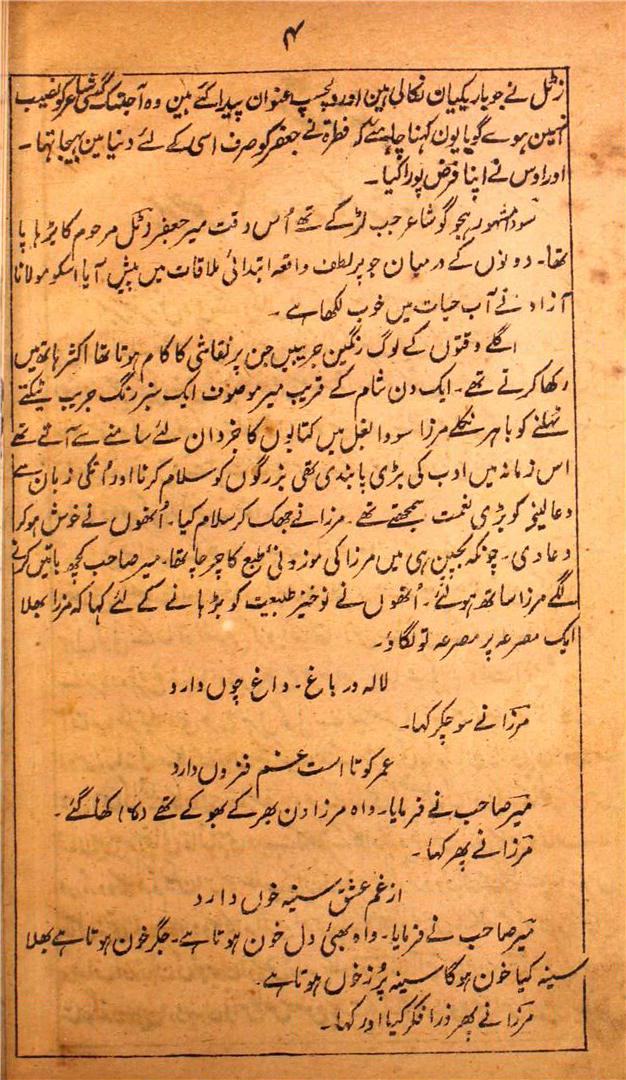 ۴
زٹل نے جو باریکیان نکالی ہین اور دلچسپ عنوان پیدا کئے ہین وہ آجتک کسی شاعر کو نصیب
نہین ہوے گویا یون کہنا چاہئے کہ فطرۃ نے جعفر کو صرف اسی کے لئے دنیا مین بہیجا تہا۔
اور اوس نے اپنا فرض پورا کیا۔
سودا مشہور ہجو گو شاعر جب لڑکے تھے اُس وقت میر جعفر زٹل مرحوم کا بڑہاپا
تھا۔ دونوں کے درمیان جو پر لطف واقعہ ابتدائی ملاقات میں پیش آیا اسکو مولانا
آزاد نے آب حیات میں خوب لکھا ہے ۔
اگلے وقتوں کے لوگ رنگین جریبیں جن پر نقاشی کا کام ہوتا تھا اکثر ہاتھ میں
رکھا کرتے تھے۔ ایک دن شام کے قریب میر موصوف ایک سبز رنگ جریب ٹیکتے
ٹہلنے کو باہر نکلے مرزا سودا بغل میں کتابوں کا جزدان لئے سامنے سے آتے تھے
اس زمانہ میں ادب کی بڑی پابندی تھی بزرگوں کو سلام کرنا اور اُنکی زبان سے
دعا لینی کو بڑی نعمت سمجھتے تھے۔ مرزا نے جھک کر سلام کیا۔ اُنھوں نے خوش ہوکر
دعا دی۔ چونکہ بچپن ہی میں مرزا کی موزونیٔ طبع کا چرچا تھا۔ میر صاحب کچھ باتیں کرنے
لگے مرزا ساتھ ہولئے۔ اُنھوں نے نوخیز طبیعت کو بڑہانے کے لئے کہا کہ مرزا بھلا
ایک مصرعہ پر مصرعہ تو لگاؤ۔
لالہ در باغ ۔ داغ چوں دارد
مرزا نے سوچکر کہا۔
عمر کوتا است غم فزوں دارد
میر صاحب نے فرمایا۔ واہ مرزا دن بھر کے بھوکے تھے کھا گئے۔
مرزا نے پھر کہا۔
از غم عشق سینہ خوں دارد
میر صاحب نے فرمایا۔ واہ بھئی دل خون ہوتا ہے۔ جگر خون ہوتا ہے بھلا
سینہ کیا خون ہوگا سینہ پُر زخوں ہوتا ہے۔
مرزا نے پھر ذرا فکر کیا اور کہا۔